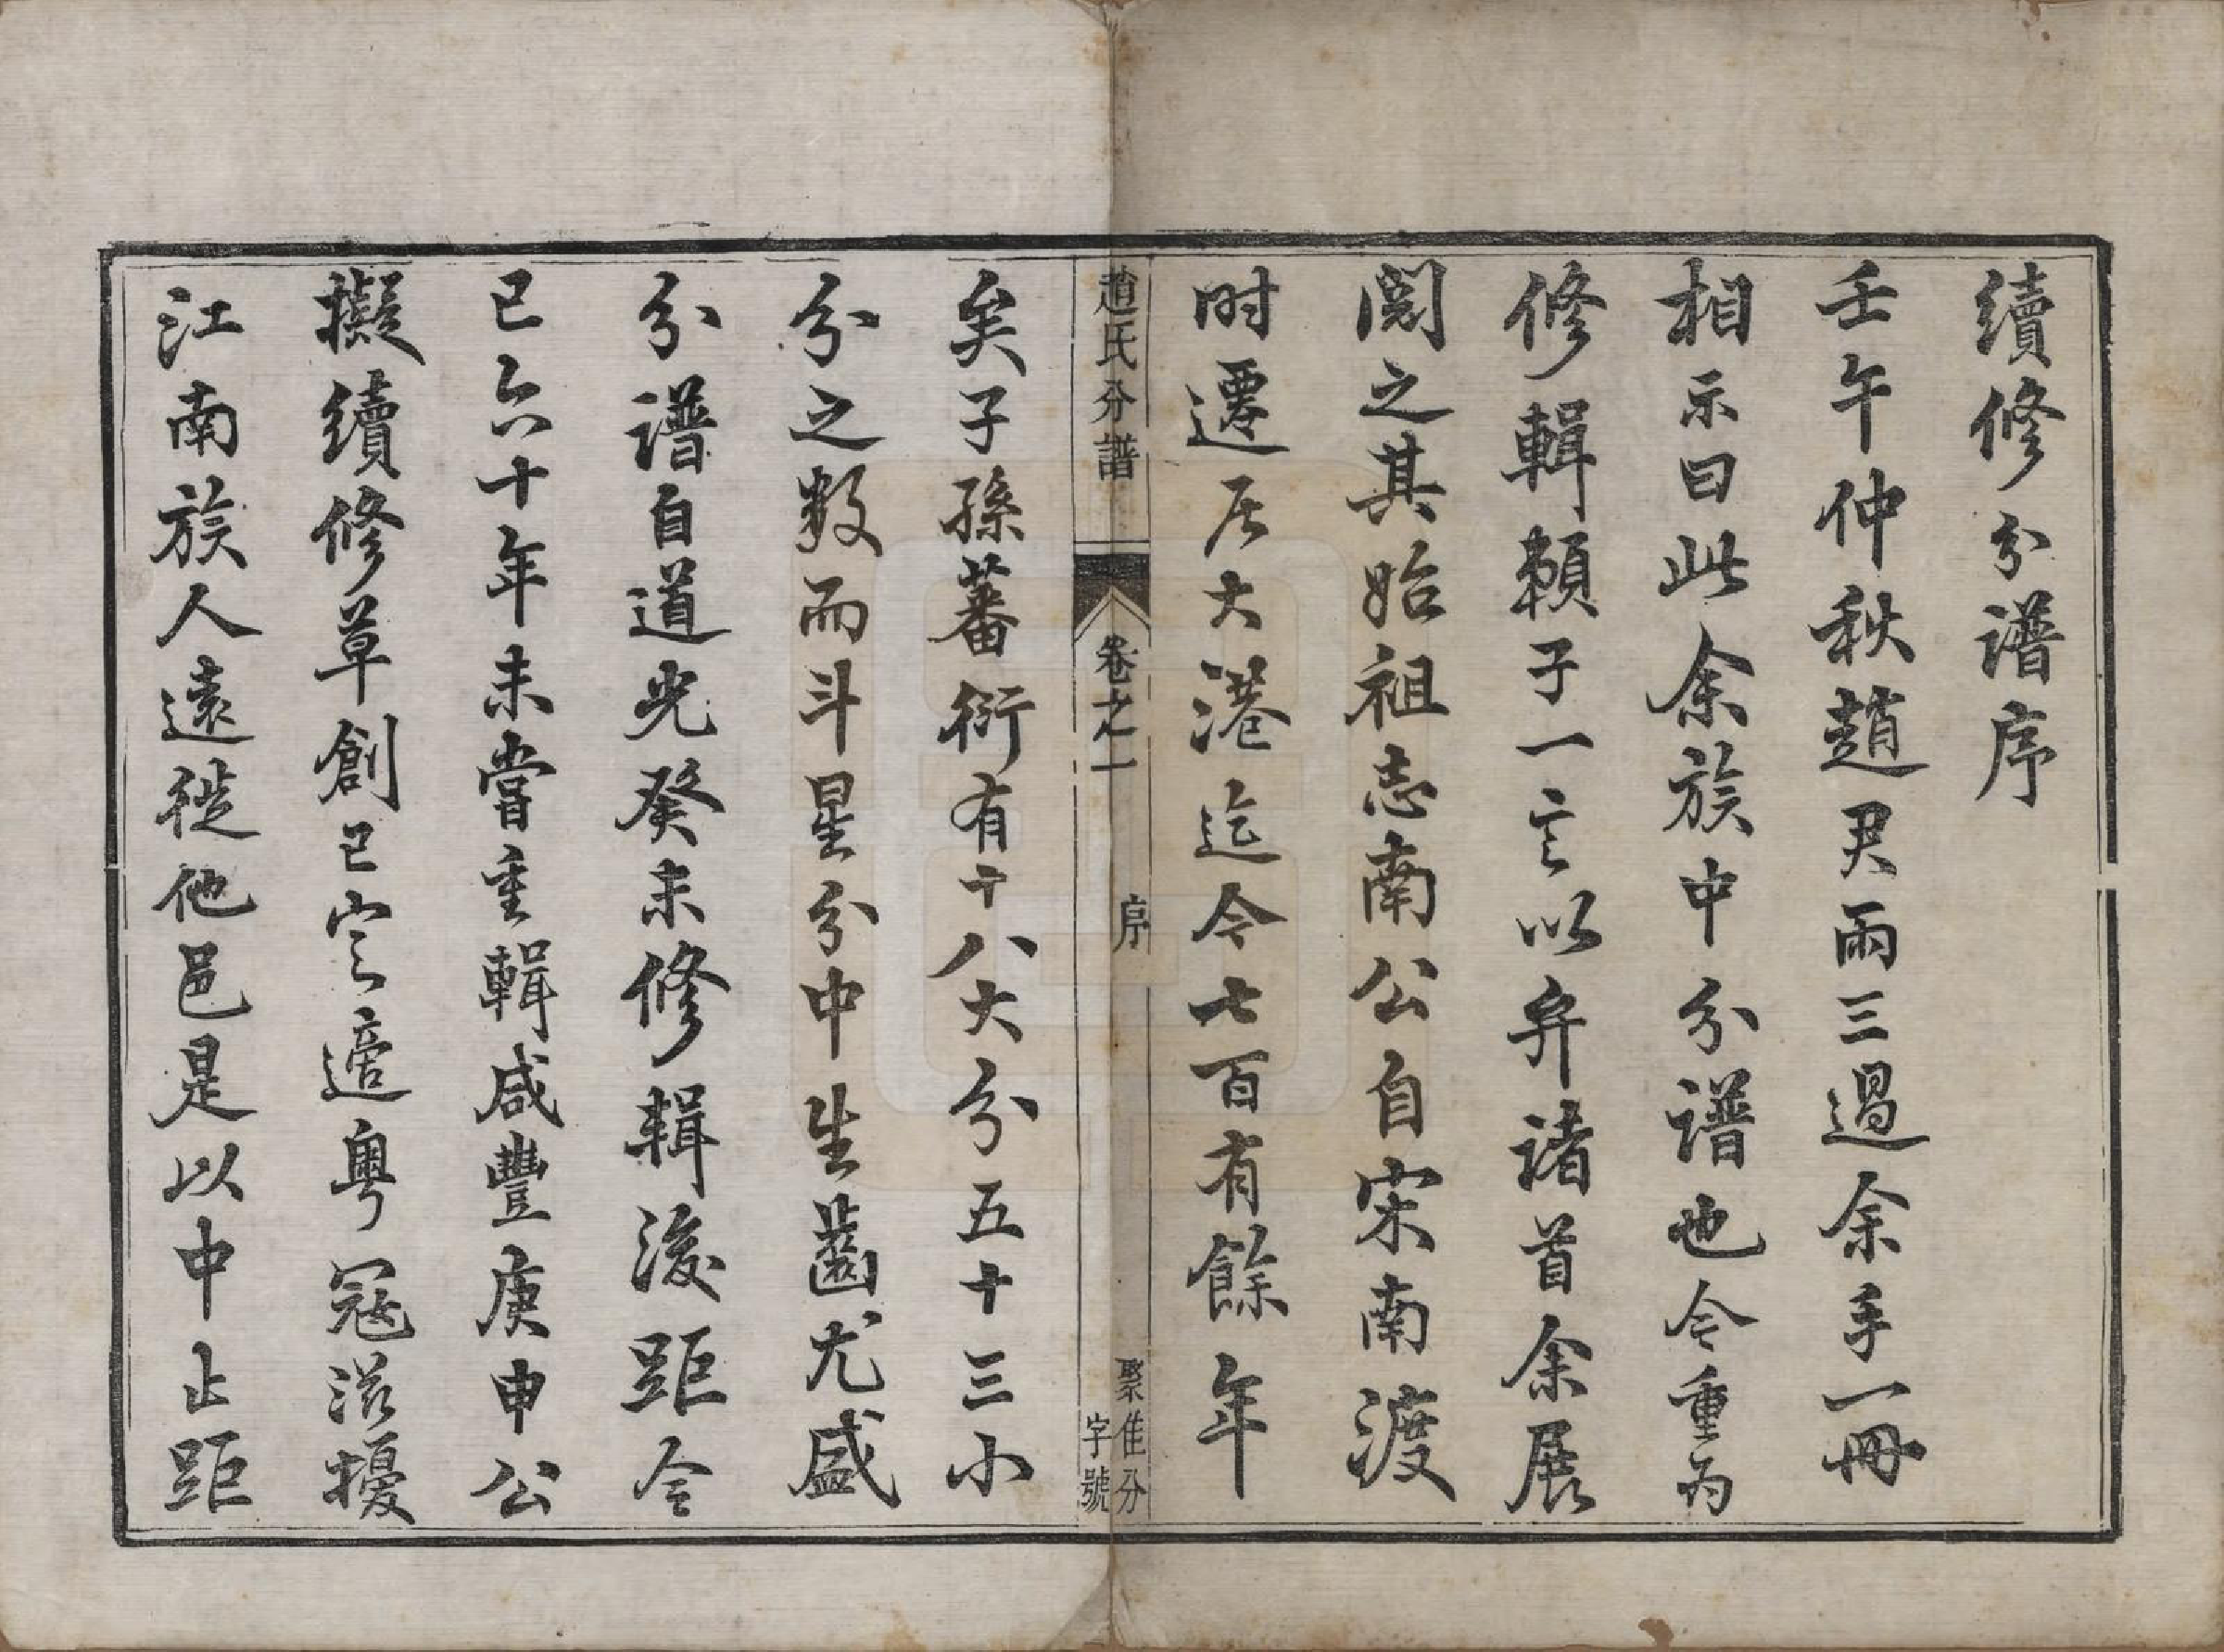 續修分譜序
壬午仲秋趙君雨三過余手一冊
相示曰此余族中分譜也今重為
修輯賴子一言以弁諸首余展
閱之其始祖志南公自宋南渡
时遷居大港迄今七百有餘年
趙氏分譜
卷之一
序
聚佳分
字號
矣子孫蕃衍有十八大分五十三小
分之數而斗星分中生齒尤盛
分譜自道光癸未修輯後距今
已六十年未嘗重輯咸豐庚申公
擬續修草創已定適粵冦滋擾
江南族人遠徙他邑是以中止距